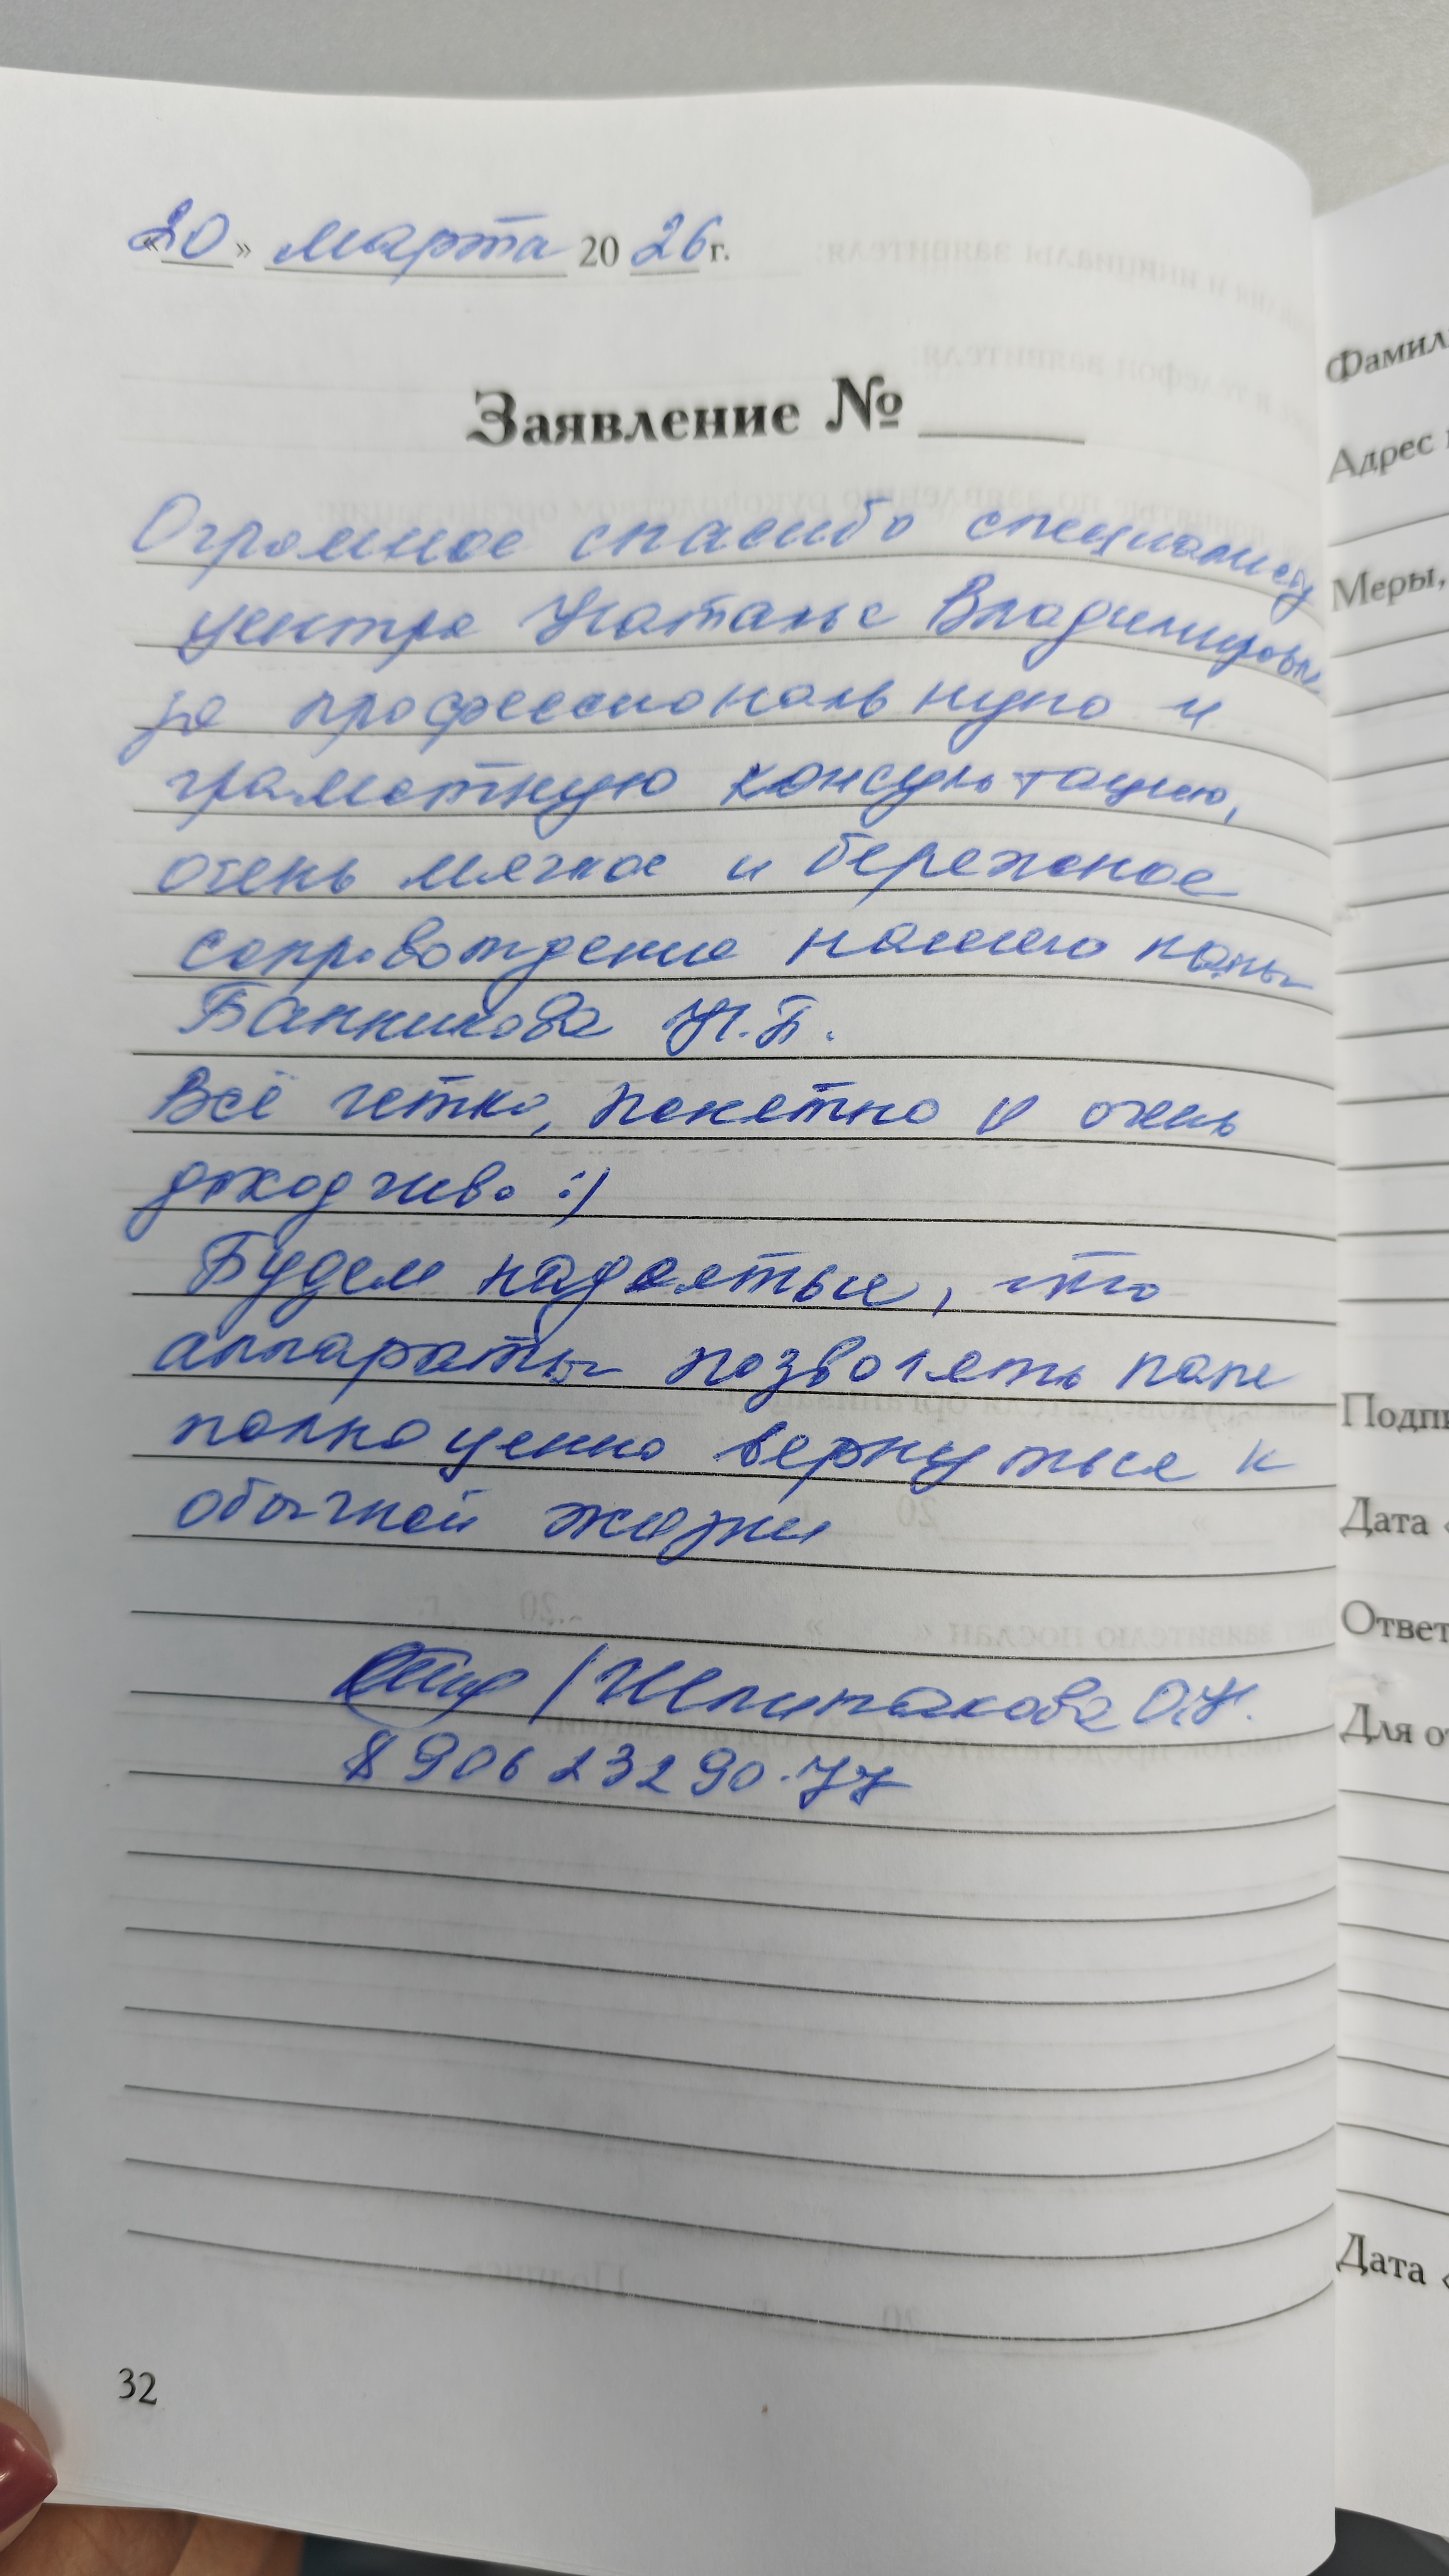 «20» марта 2026 г.
Заявление №
Огромное спасибо специалисту
центра Наталье Владимировне
за профессиональную и
грамотную консультацию,
очень мягкое и бережное
сопровождение нашего папы
Банникова Н.П.
Всё четко, понятно и очень
доходчиво :)
Будем надеяться, что
аппараты позволять папе
полноценно вернуться к
обычной жизни
/Шпитакова О.Н.
8 906 23290.77
32
Фамил
Адрес
Меры,
Подпи
Дата «
Ответ
Для о
Дата «